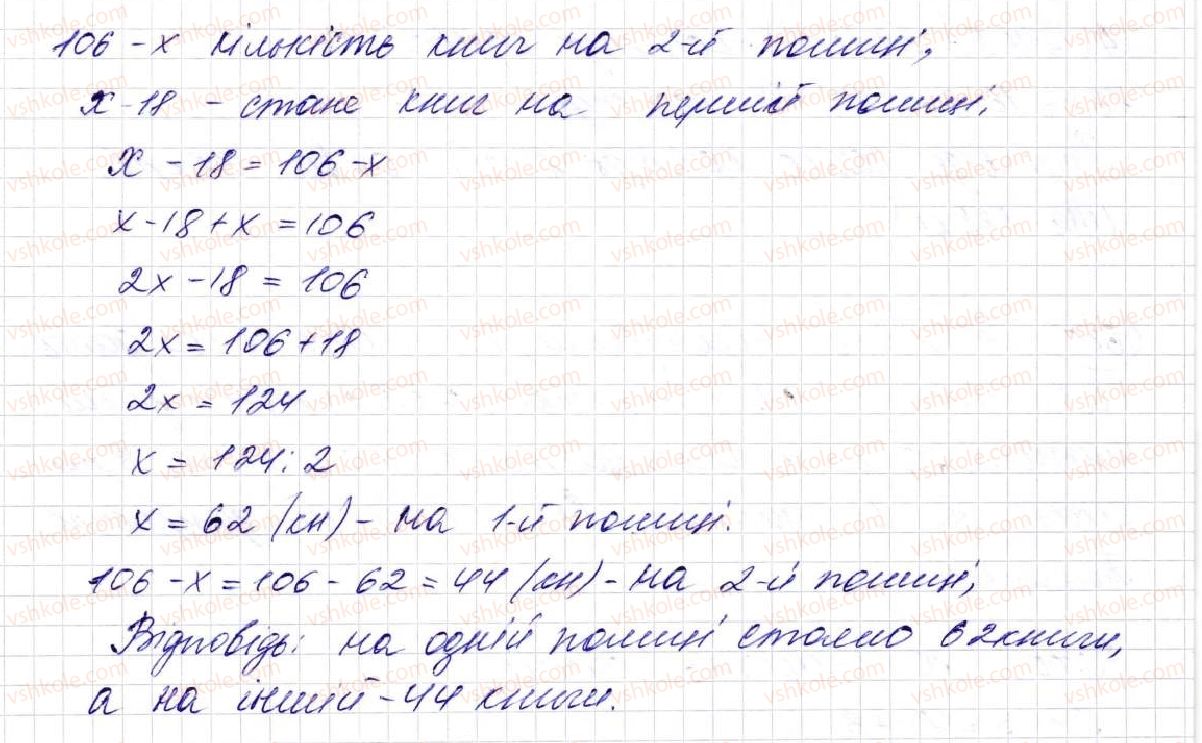 106 - x кількість книг на 2-й полиці;
x - 18 - стане книг на першій полиці;
x - 18 = 106 - x
x - 18 + x = 106
2x - 18 = 106
2x = 106 + 18
2x = 124
x = 124 : 2
x = 62 (кн) - на 1-й полиці.
106 - x = 106 - 62 = 44 (кн) - на 2-й полиці;
Відповідь: на одній полиці стояло 62 книги,
а на іншій - 44 книги.